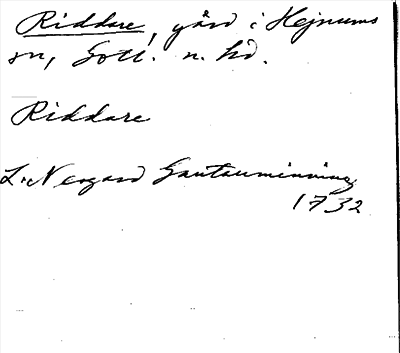 Riddare, gård i Hejnums
sn, Gotl. n. hd.
Riddare
L. Nergård Gautauminning
1732